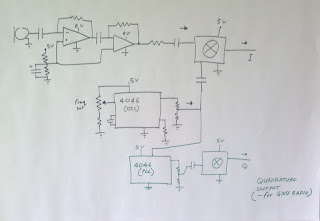 5V
5V
5V
5V
I
5V
freq
set
4046
(OSC)
5V
4046
(PLL)
5V
Q
QUADRATURE
OUTPUT
(- for GNU RADIO)